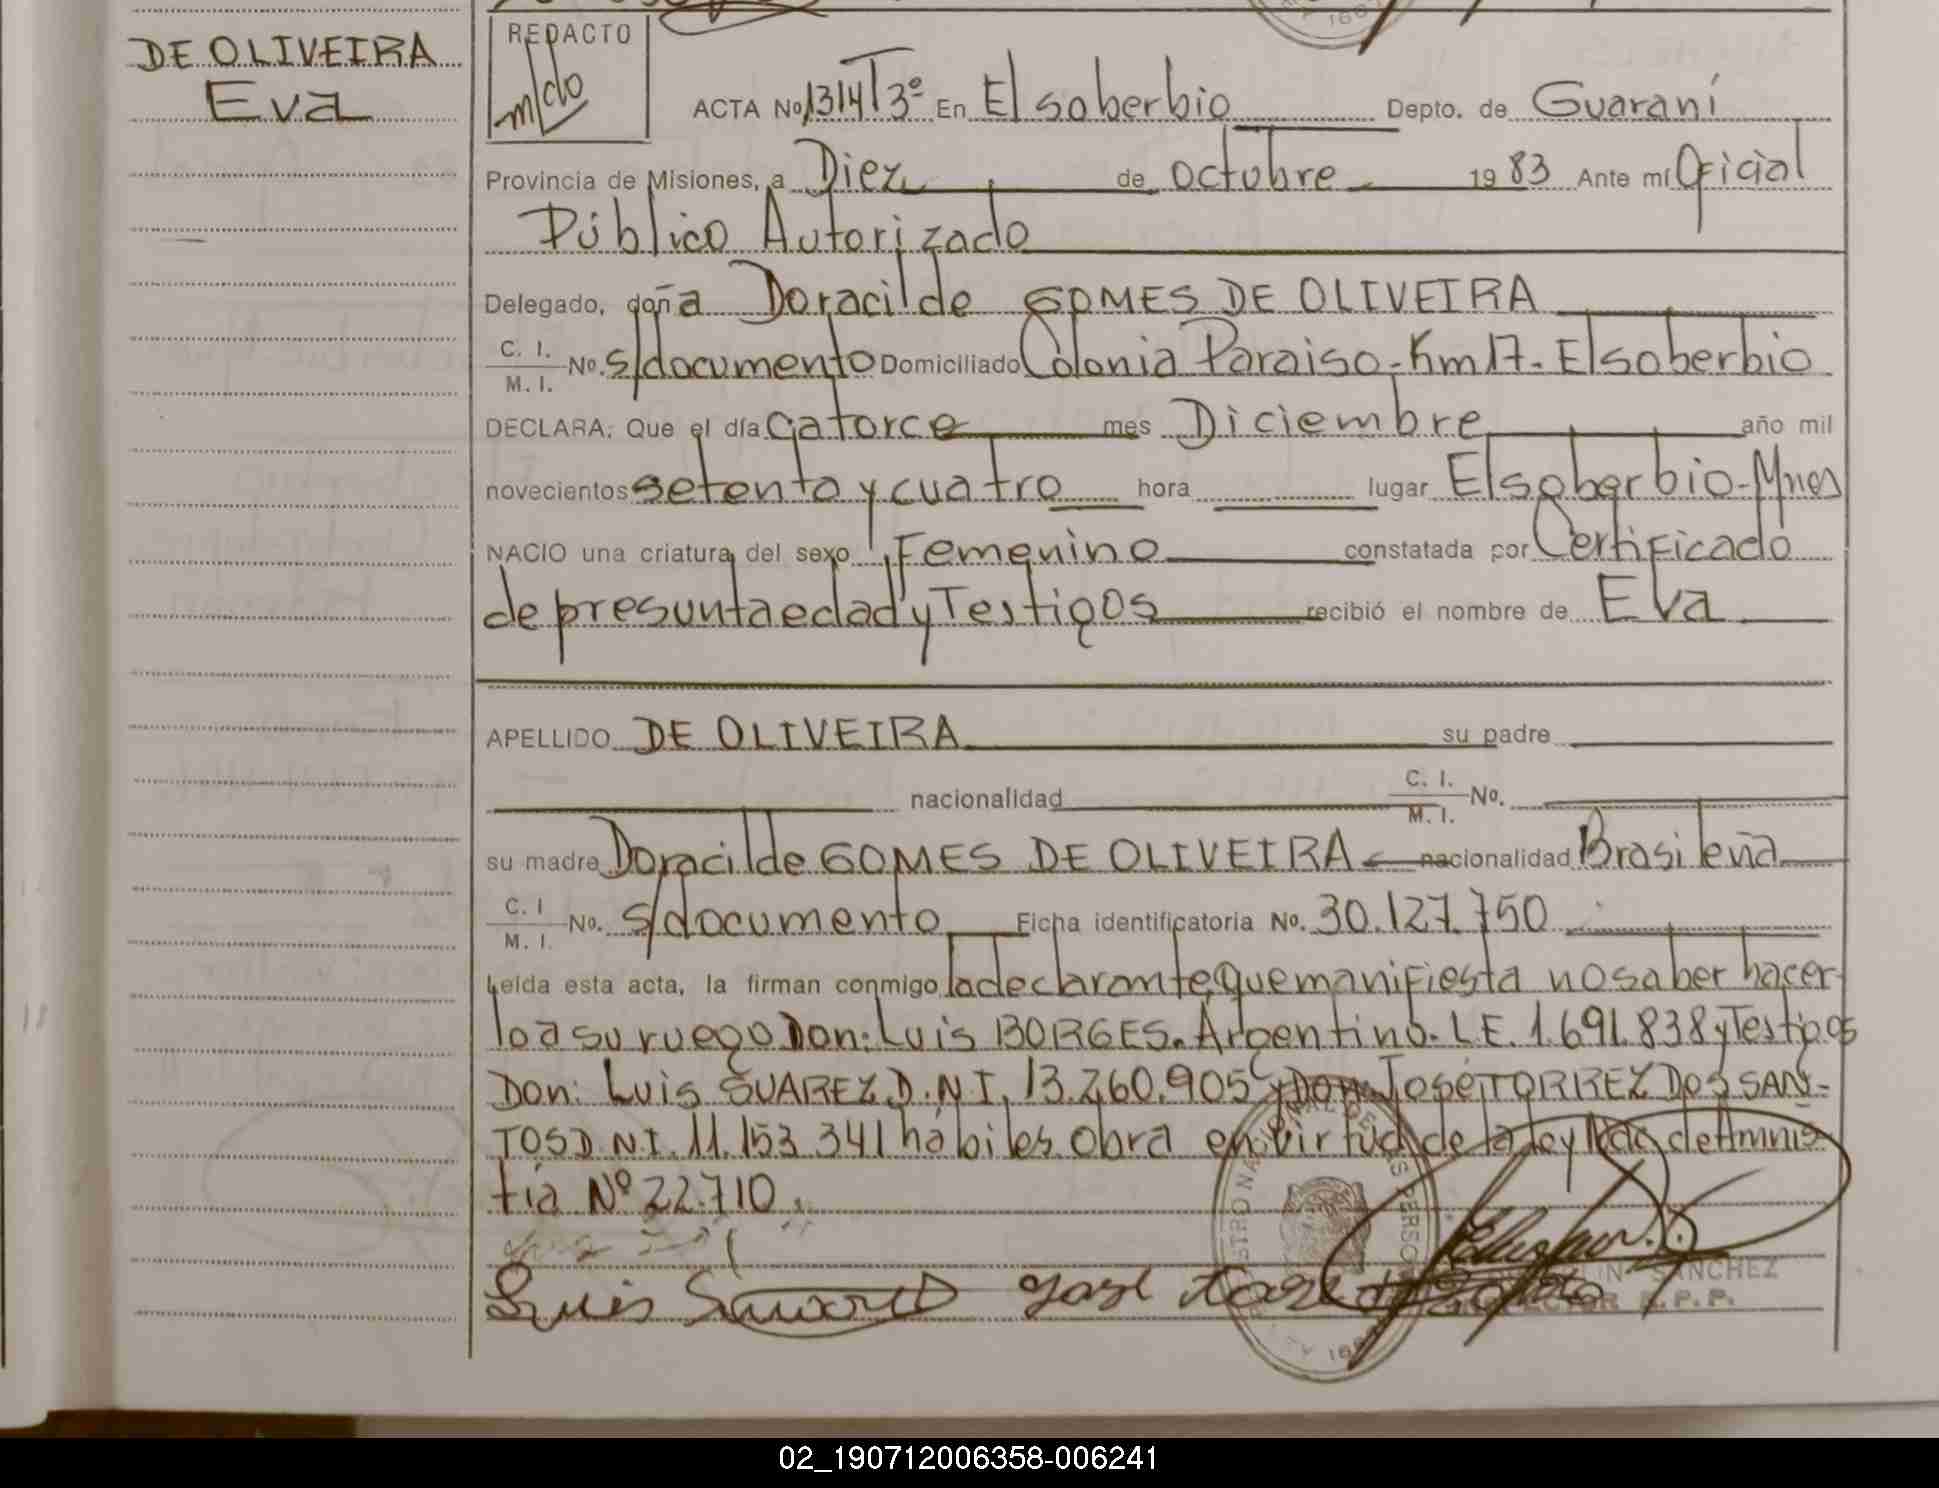 DE OLIVEIRA
Eva
REDACTO
ACTA No 1314 T3º En El soberbio Depto. de Guaraní
Provincia de Misiones, a Diez de octubre 1983 Ante mí Oficial
Público Autorizado
Delegado, doña Doracilde GOMES DE OLIVEIRA
C. I.
M. I. No. s/documento Domiciliado Colonia Paraiso-Km17-El soberbio
DECLARA: Que el día catorce mes Diciembre año mil
novecientos setenta y cuatro hora lugar El soberbio-Mnes
NACIO una criatura del sexo Femenino constatada por Certificado
de presunta edad y Testigos recibió el nombre de Eva
APELLIDO DE OLIVEIRA su padre
nacionalidad C. I.
M. I. No.
su madre Doracilde GOMES DE OLIVEIRA nacionalidad Brasileña
C. I
M. I. No. s/documento Ficha identificatoria No. 30.127.750
Leída esta acta, la firman conmigo la declarante que manifiesta no saber hacer-
lo a su ruego Don: Luis BORGES. Argentino. L.E. 1.691.838 y Testigos
Don: Luis SUAREZ D.N.I. 13.260.905 y Don José TORREZ DOS SAN-
TOS D.N.I. 11.153.341 habiles. Obra en virtud de la ley de Amnis
tia Nº 22.710.
Luis Suarez
SANCHEZ
R.P.P.
02_190712006358-006241